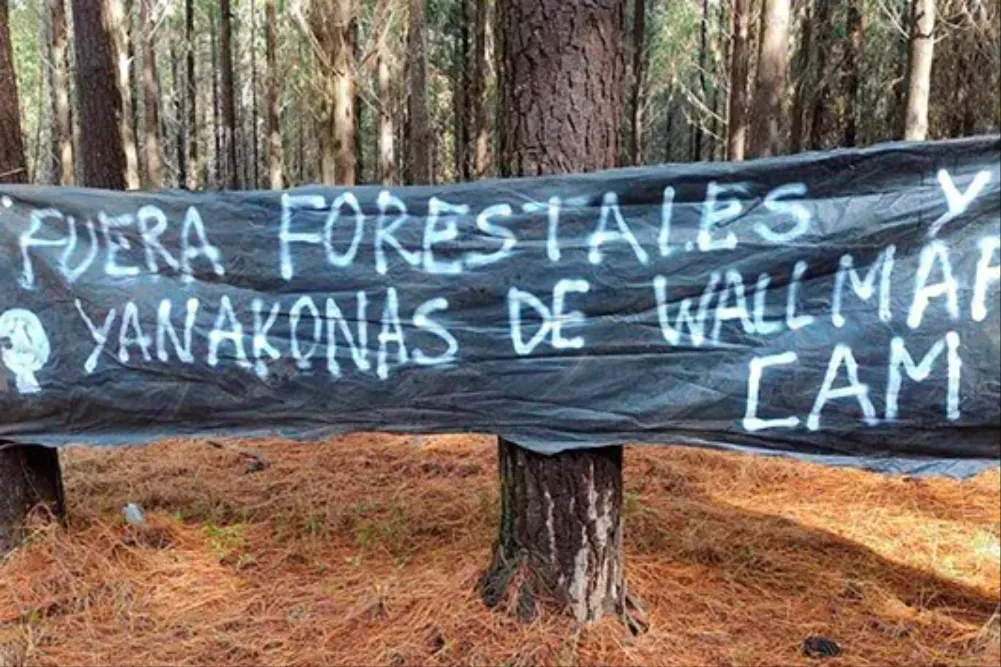 FUERA FORESTALES Y
YANAKONAS DE WALLMAP
CAM